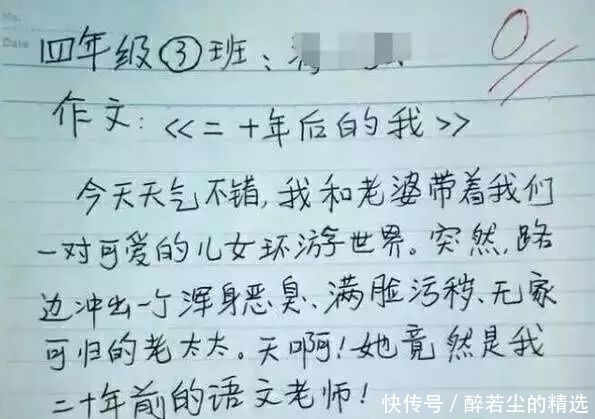 Date
四年级③班:
0
作文:《二十年后的我》
今天天气不错,我和老婆带着我们
一对可爱的儿女环游世界。突然,路
边冲出一个浑身恶臭、满脸污秽、无家
可归的老太太。天啊!她竟然是我
二十年前的语文老师!
快传号/醉若尘的精选